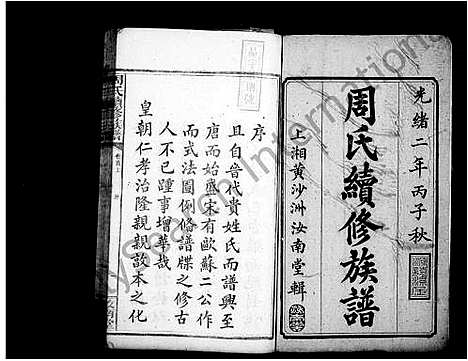 光緒二年丙子秋
周氏續修族譜
上湘黃沙洲汝南堂輯
序
且自晉代貴姓氏而譜興至
唐而始盛宋有歐蘇二公作
而式法圖例修譜牒之修古
人不已踵事增華哉
皇朝仁孝治隆親親故本之化
周氏續修族譜